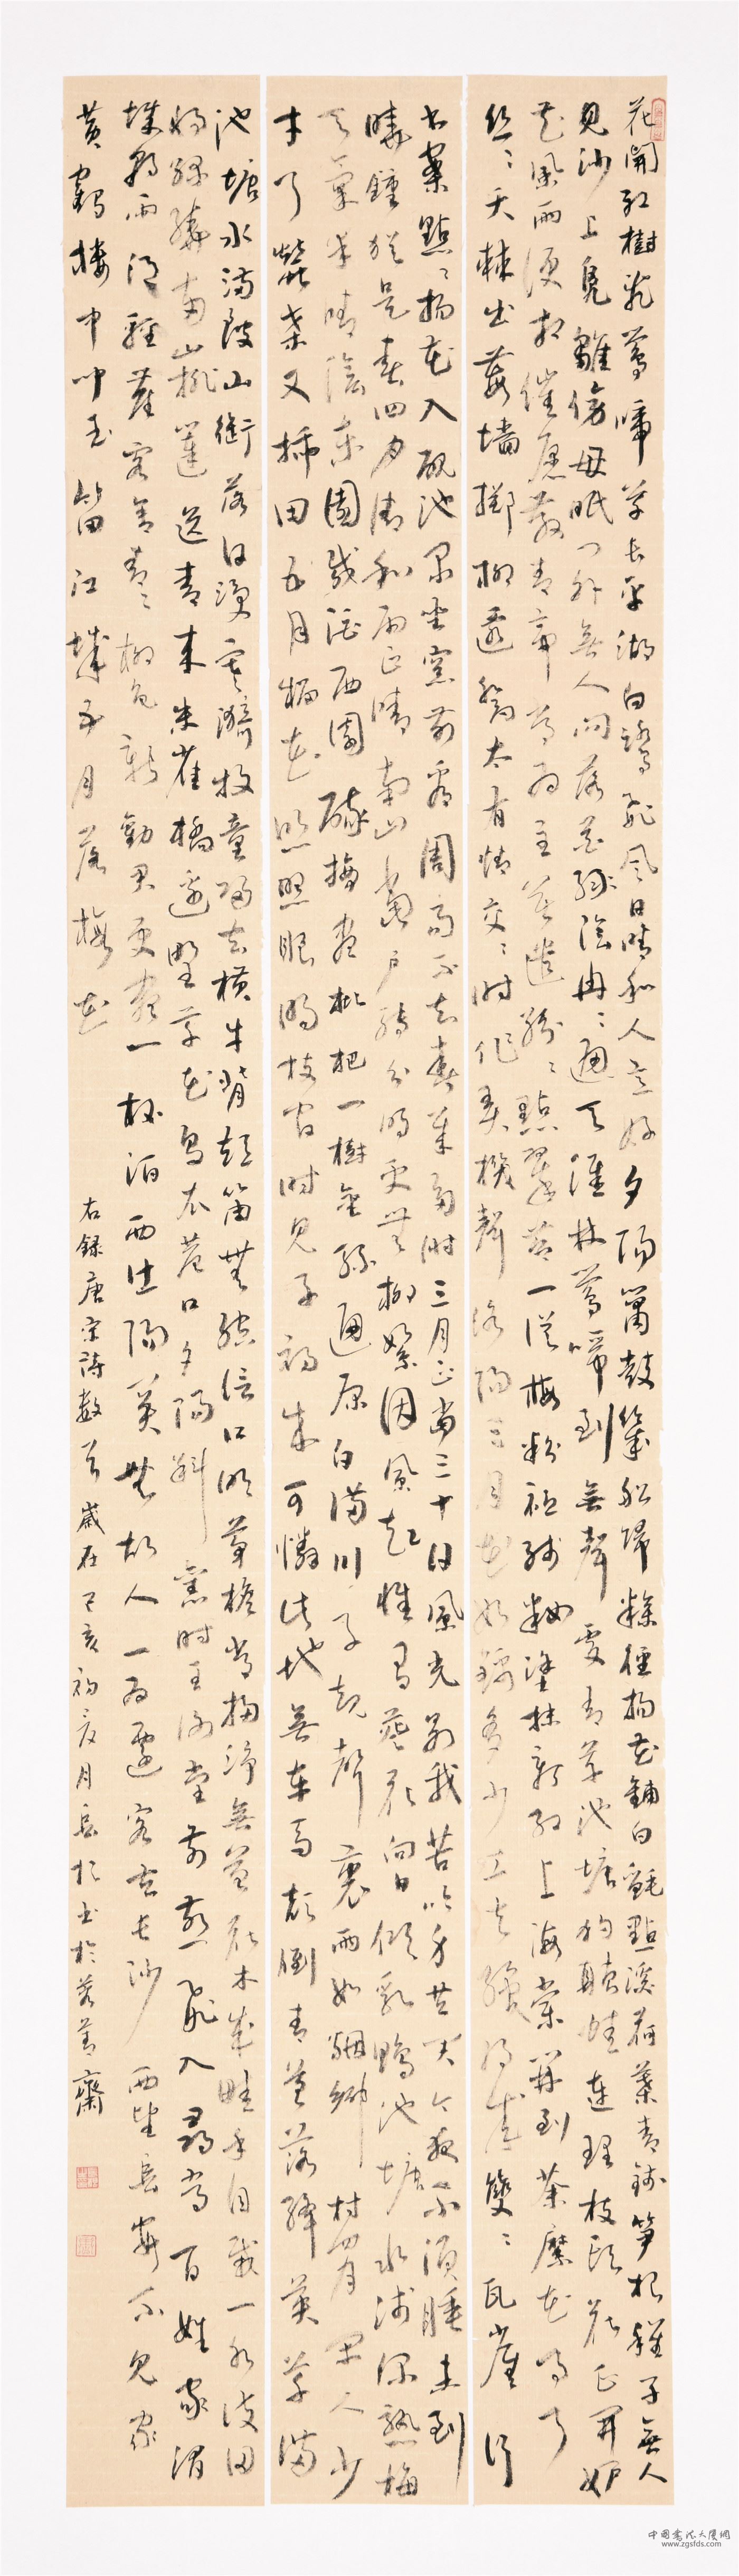 花開紅樹亂鶯啼草長平湖白鷺飛風日晴和人意好夕陽簫鼓幾船歸糝徑楊花鋪白氈點溪荷葉青錢笋根稚子無人
見沙上鳧雛傍母眠門外無人問落花綠陰冉冉遍天涯林鶯啼到無聲處青草池塘獨聽蛙連理枝頭花正開妒
花風雨便相催愿教青帝常為主莫遣紛紛點翠苔一從梅粉褪殘妝塗抹新紅上海棠開到荼蘼花事了
絲絲天棘出莓墻擲柳遷喬太有情交交時作弄機聲洛陽三月花如錦多少工夫織得成雙雙瓦雀行
書案點點楊花入硯池閑坐窓前看周易不知春幾多時三月正當三十日風光別我苦吟身共君今夜不須睡未到
曉鐘猶是春四月清和雨乍晴南山當戶轉分明更無柳絮因風起惟有葵花向日傾乳鴨池塘水淺深熟梅
天氣半晴陰東園載酒西園醉摘盡枇杷一樹金綠遍原白滿川子規聲裏雨如烟鄉村四月閑人少
才了蠶桑又插田五月榴花照照眼明枝間時見子初成可憐此地無車馬顛倒青苔落絳英草滿
池塘水滿陂山銜落日浸寒漪牧童歸去橫牛背短笛無腔信口吹茅檐常掃淨無苔花木成畦手自栽一水護田
將綠繞兩山排闥送青來朱雀橋邊野草花烏衣巷口夕陽斜舊時王謝堂前燕飛入尋常百姓家渭
城朝雨浥輕塵客舍青青柳色新勸君更盡一杯酒西出陽關無故人一為遷客去長沙西望長安不見家
黃鶴樓中吹玉笛江城五月落梅花
右錄唐宋詩數首歲在己亥初夏月書於若菁齋
中國書法大廈網
www.zgsfds.com